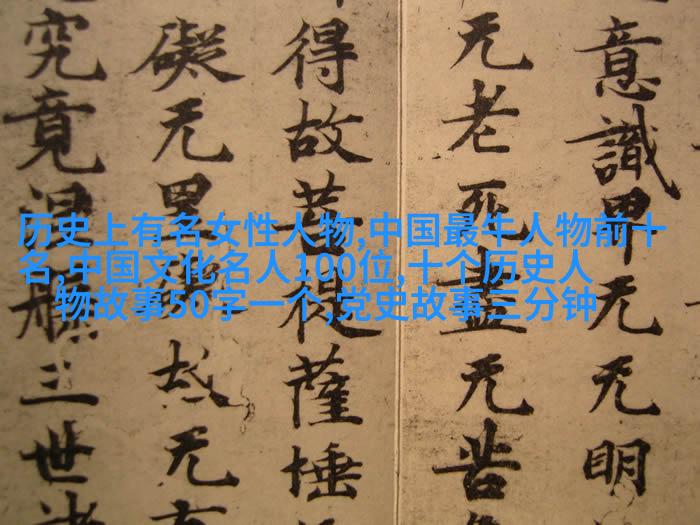 历史上有名女性人物,中国最牛人物前十
名,中国文化名人100位,十个历史人
物故事50字一个,党史故事三分钟
意識界无无明
无老死盡无苦
得故菩提薩埵
礙无罣礙故无有
究竟涅槃三世諸